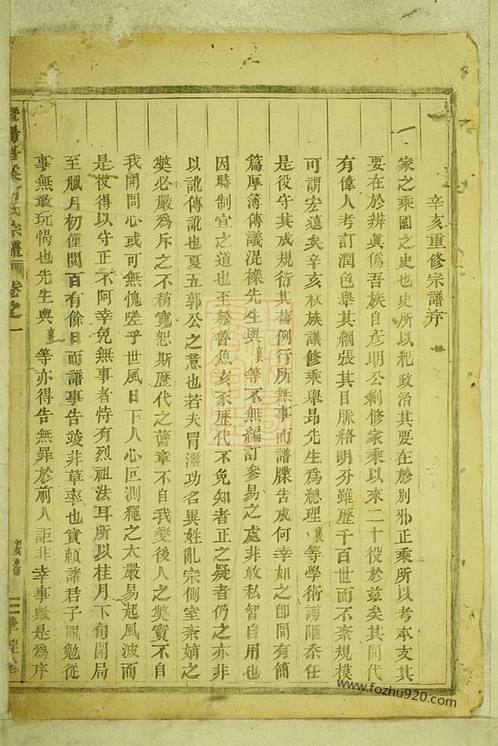 辛亥重修宗譜序
一家之乘國之史也史所以紀政治其要在於別邪正乘所以考本支其
要在於辨眞僞吾族自彥明公剏修家乘以來二十役於茲矣其間代
有偉人考訂潤色舉其綱張其目脈絡明分雖歷千百世而不紊規模
可謂宏遠矣辛亥秋族議修乘舉昂先生爲總理襄等學術謭陋忝任
是役守其成規衍其舊例行所無事而譜牒告成何幸如之卽間有簡
篇厚薄傳議混樑先生與襄等不無編訂參易之處非敢私智自用也
因時制宜之道也至於魯魚亥豕歷代不免知者正之疑者仍之亦非
以訛傳訛也夏五郭公之意也若夫冒濫功名異姓亂宗側室紊嫡之
獘必嚴爲斥之不稍寬恕斯歷代之舊章不自我變後人之獘竇不自
我開問心或可無愧嗟乎世風日下人心叵測繩之太嚴易起風波而
是役得以守正不阿幸免無事者恃有烈祖法耳所以桂月下旬開局
至臘月初僅閱百有餘日而譜事告竣非草率也實賴諸君子黽勉從
事無敢玩愒也先生與襄等亦得告無罪於前人詎非幸事歟是爲序
宗譜
卷之一
www.fozhu920.com